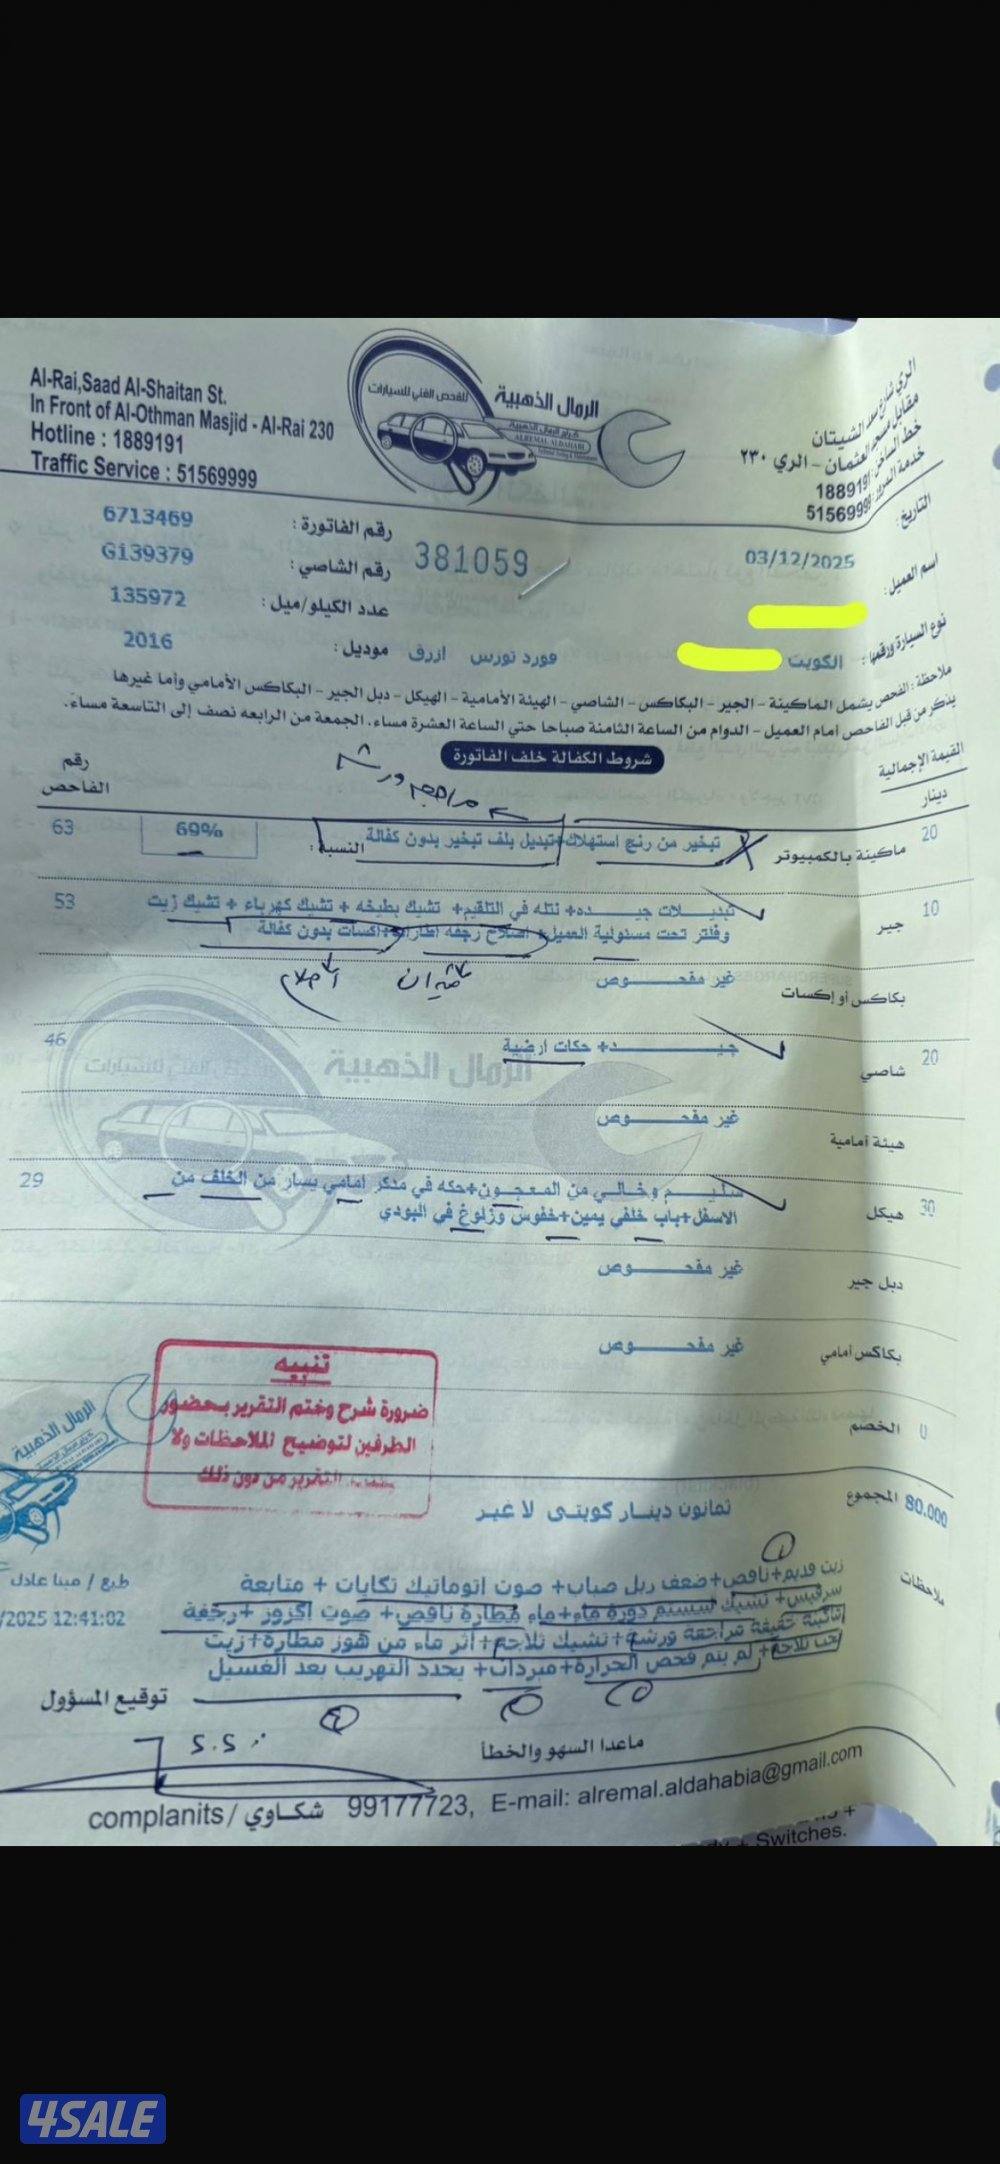 Al-Rai,Saad Al-Shaitan St.
In Front of Al-Othman Masjid - Al-Rai 230
Hotline : 1889191
Traffic Service : 51569999
الرمال الذهبية
للفحص الفني للسيارات
كراج الرمال الذهبية
ALREMAL ALDAHABI
الري شارع سعد الشيتان
مقابل مسجد العثمان - الري ٢٣٠
خط الساخن: 1889191
خدمة المرور: 51569999
التاريخ:
03/12/2025
رقم الفاتورة : 6713469
381059
اسم العميل:
رقم الشاصي : G139379
عدد الكيلو/ميل : 135972
نوع السيارة ورقمها : الكويت
فورد تورس ازرق
موديل : 2016
ملاحظة : الفحص يشمل الماكينة - الجير - البكاكس - الشاصي - الهيئة الأمامية - الهيكل - دبل الجير - البكاكس الأمامي وأما غيرها
يذكر من قبل الفاحص أمام العميل - الدوام من الساعة الثامنة صباحا حتي الساعة العشرة مساء، الجمعة من الرابعه نصف إلى التاسعة مساءً.
شروط الكفالة خلف الفاتورة
القيمة الإجمالية
دينار
رقم
الفاحص
20 ماكينة بالكمبيوتر
تبخير من رنج استهلاك+تبديل بلف تبخير بدون كفالة
النسبة : 69%
63
10 جير
تبديــلات جيــده+ نتله في التلقيم+ تشيك بطيخه + تشيك كهرباء + تشيك زيت
وفلتر تحت مسئولية العميل+ اصلاح رجفه اطارات+اكسات بدون كفالة
53
بكاكس أو إكسات
غير مفحــوص
20 شاصي
جيــد+ حكات ارضية
46
هيئة أمامية
غير مفحــوص
30 هيكل
سليــم وخالــي من المعجــون+حكه في مدكر امامي يسار من الخلف من
الاسفل+باب خلفي يمين+خفوس وزلوغ في البودي
29
دبل جير
غير مفحــوص
بكاكس أمامي
غير مفحــوص
0 الخصم
تنبيه
ضرورة شرح وختم التقرير بحضور
الطرفين لتوضيح الملاحظات ولا
التقرير من دون ذلك
80.000 المجموع
ثمانون دينــار كويتــى لا غيــر
ملاحظات
زيت قديم+ناقص+ضعف ربل صباب+ صوت اتوماتيك تكايات + متابعة
سرفيس+ تشيك سيستم دورة ماء+ماء مطارة ناقص+ صوت اكزوز +رجفة
ماكينة خفيفة مراجعة ورشة+تشيك ثلاجة+اثر ماء من هوز مطارة+زيت
تحت ثلاجة+لم يتم فحص الحرارة+مبردات+ يحدد التهريب بعد الغسيل
طبع / مينا عادل
/2025 12:41:02
توقيع المسؤول
ماعدا السهو والخطأ
complanits / شكاوي 99177723, E-mail: alremal.aldahabia@gmail.com
+ Switches.
4SALE